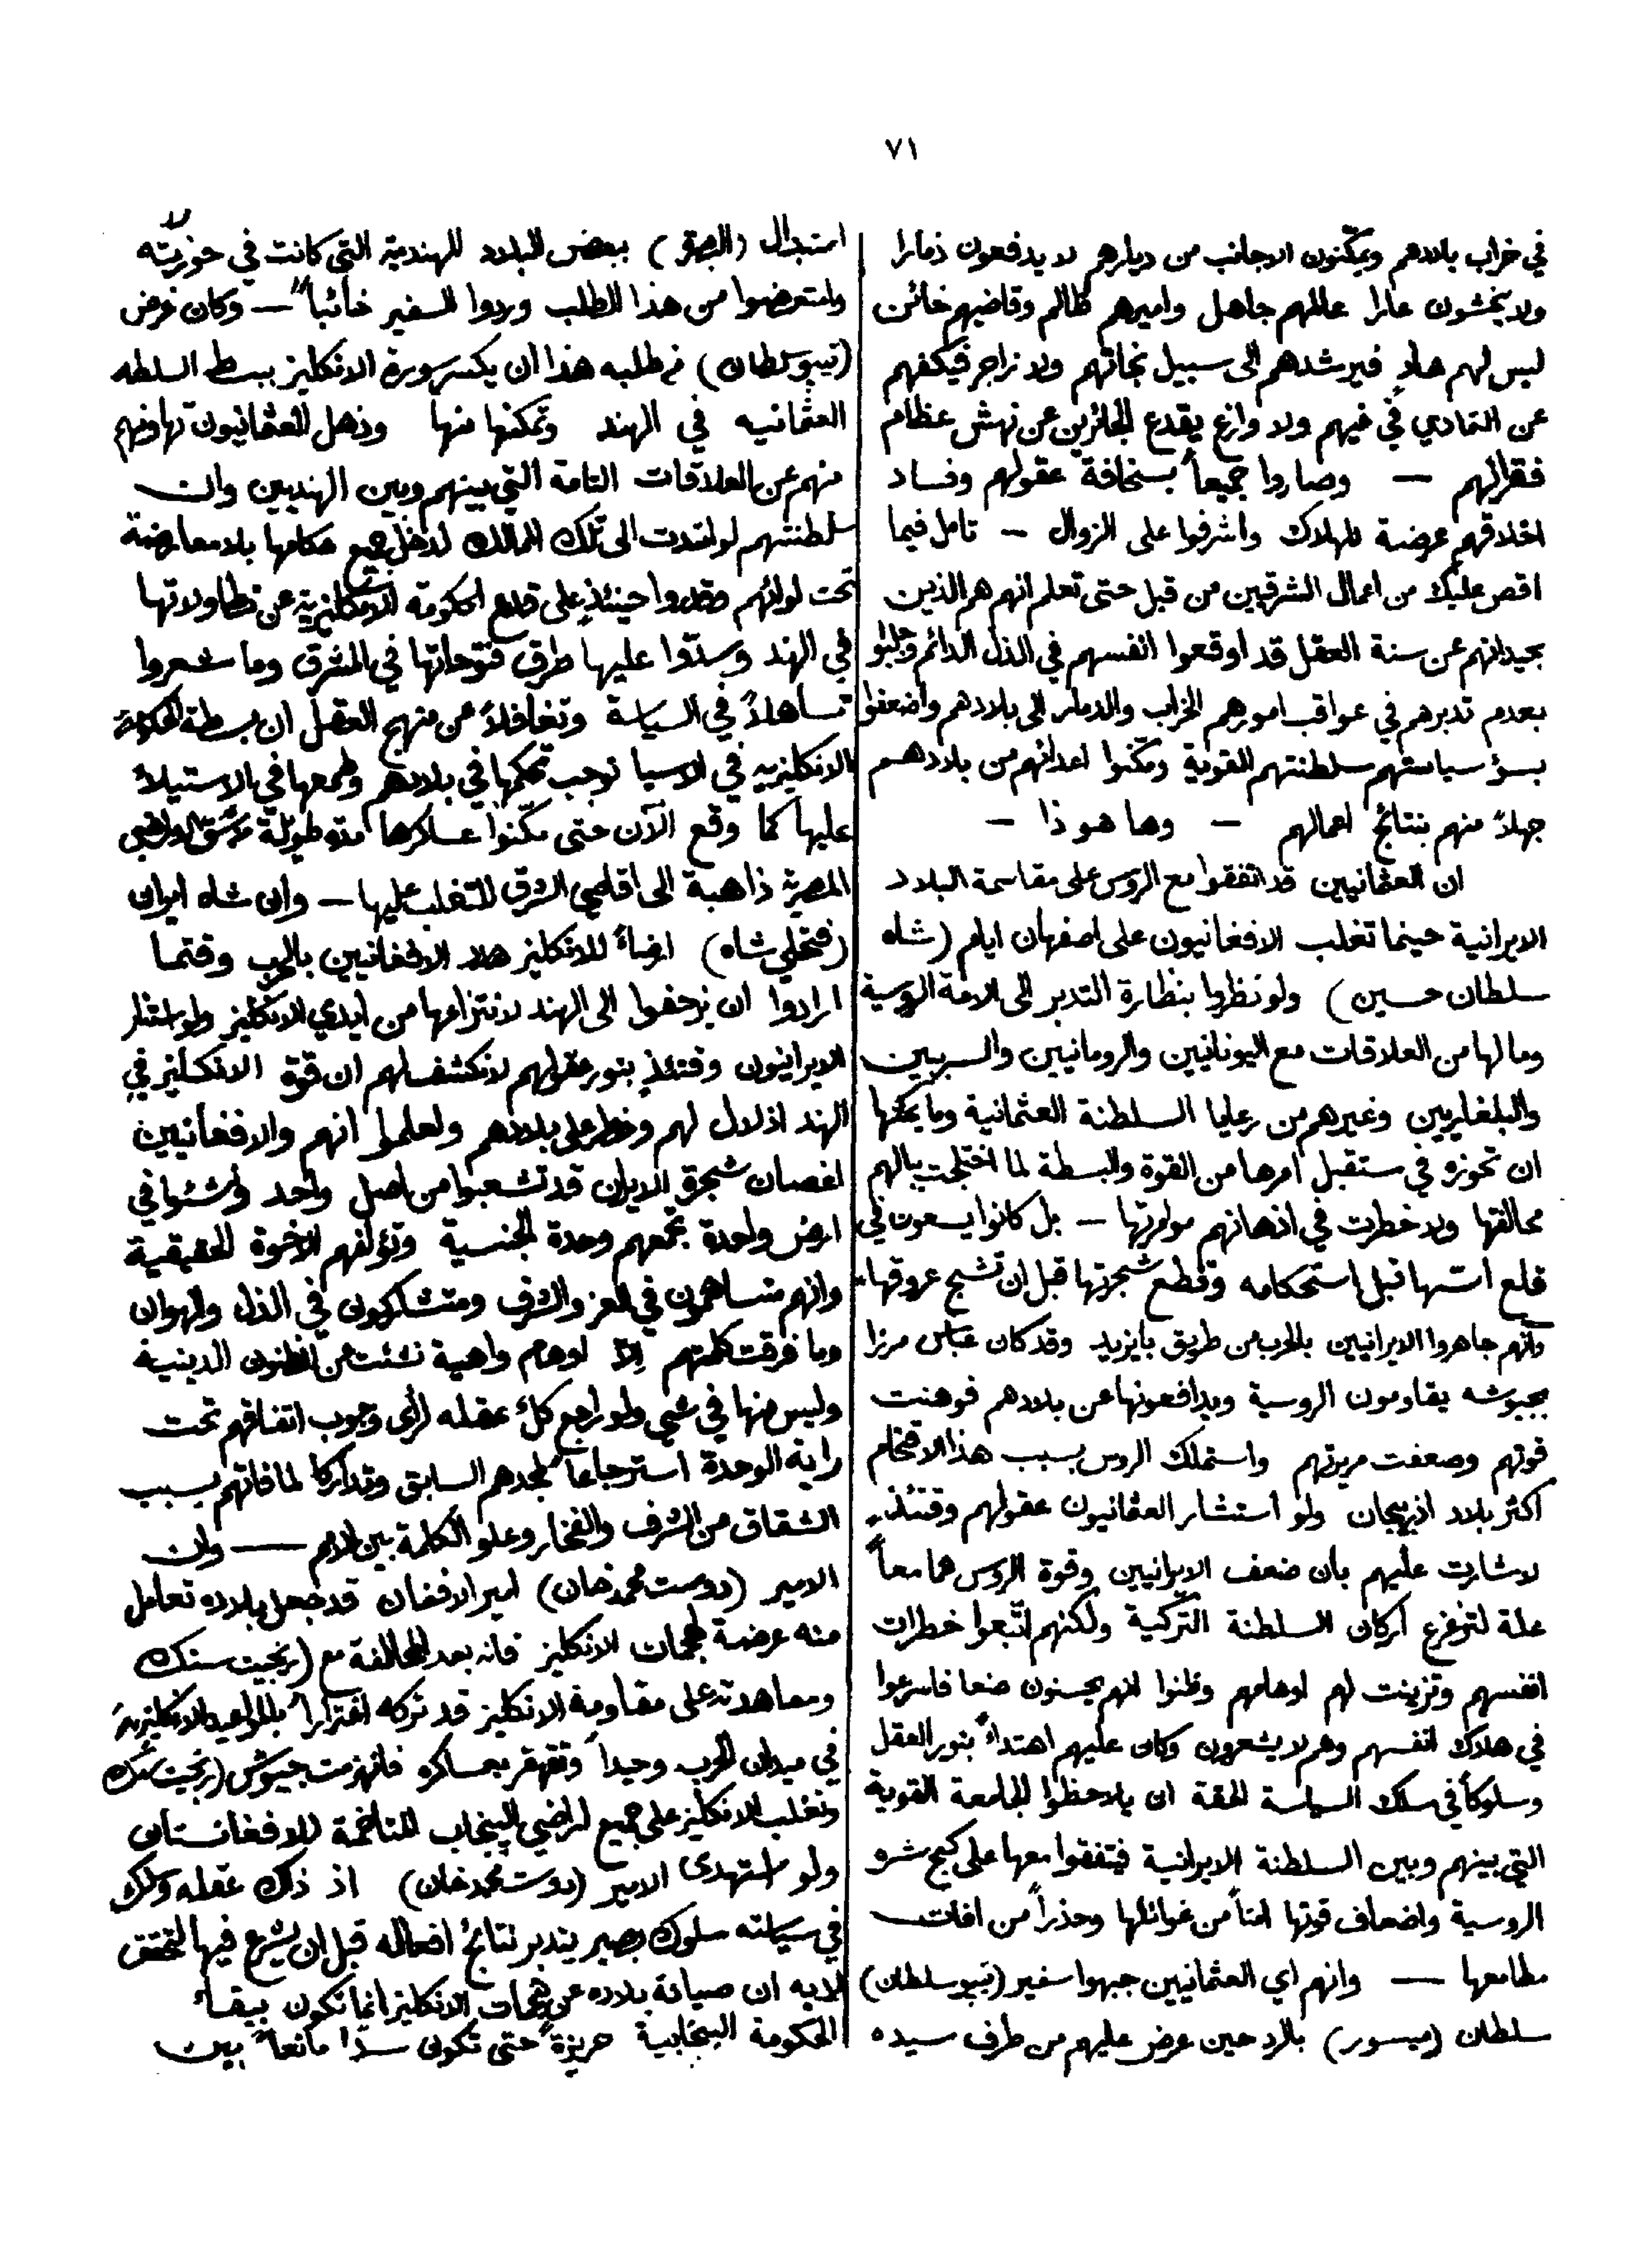 ٧١
في خراب بلادهم ويمكّنون الاجانب من ديارهم لا يدفعون ذمارا
ولا يخشون عارا عالمهم جاهل واميرهم ظالم وقاضيهم خائن
ليس لهم هادٍ فيرشدهم الى سبيل نجاتهم ولا زاجر فيكفهم
عن التمادي في غيهم ولا وازع يقدع الجائرين عن نهش عظام
فقرائهم — وصاروا جميعاً بسخافة عقولهم وفساد
اخلاقهم عرضة للهلاك واشرفوا على الزوال — تامل فيما
اقص عليك من اعمال الشرقيين من قبل حتى تعلم انهم هم الذين
بحيدانهم عن سنة العقل قد اوقعوا انفسهم في الذل الدائم وجلبوا
بعدم تدبرهم في عواقب امورهم الخراب والدمار الى بلادهم واضعفوا
بسؤ سياستهم سلطنتهم القوية ومكّنوا اعدائهم من بلادهم
جهلاً منهم بنتائج اعمالهم — وها هو ذا —
ان العثمانيين قد اتفقوا مع الروس على مقاسمة البلاد
الايرانية حينما تغلب الافغانيون على اصفهان ايام (شاه
سلطان حسين) ولو نظروا بنظارة التدبر الى الامة الروسية
وما لها من العلاقات مع اليونانيين والرومانيين والسربيين
والبلغاريين وغيرهم من رعايا السلطنة العثمانية وما يمكنها
ان تحوزه في مستقبل امرها من القوة والبسطة لما اختلجت ببالهم
محالفتها ولا خطرت في اذهانهم موازرتها — بل كانوا يسعون في
قلع اسّها قبل استحكامه وقطع شجرتها قبل ان تشبج عروقها
وانهم جاهروا الايرانيين بالحرب من طريق بايزيد وقد كان عباس مرزا
بجيوشه يقاومون الروسية ويدافعونها عن بلادهم فوهنت
قوتهم وضعفت مريرتهم واستملك الروس بسبب هذا الاقتحام
اكثر بلاد اذربيجان ولو استشار العثمانيون عقولهم وقتئذٍ
لاشارت عليهم بان ضعف الايرانيين وقوة الروس هما معاً
علة لتزعزع اركان السلطنة التركية ولكنهم اتّبعوا خطرات
انفسهم وتزينت لهم اوهامهم وظنوا انهم يحسنون صنعا فاسرعوا
في هلاك انفسهم وهم لا يشعرون وكان عليهم اهتداءً بنور العقل
وسلوكاً في مسلك السياسة الحقة ان يلاحظوا الجامعة القوية
التي بينهم وبين السلطنة الايرانية فيتفقوا معها على كبح شره
الروسية واضعاف قوتها امناً من غوائلها وحذراً من افات
مطامعها — وانهم اي العثمانيين جبهوا سفير (تيبو سلطان)
سلطان (ميسور) بالرد حين عرض عليهم من طرف سيده
استبدال (البصرة) ببعض البلاد الهندية التي كانت في حوزته
وامتعضوا من هذا الطلب وردوا السفير خائباً — وكان غرض
(تيبو سلطان) من طلبه هذا ان يكسر سورة الانكليز ببسط السلطه
العثمانيه في الهند وتمكنها منها وذهل العثمانيون تهاونا
منهم عن العلاقات التامة التي بينهم وبين الهنديين وان
سلطنتهم لو امتدت الى تلك الممالك لدخل جميع حكامها بلا معارضة
تحت لوائهم وقدروا حينئذٍ على قلع الحكومة الانكليزية عن تطاولاتها
في الهند وسدّوا عليها طرق فتوحاتها في المشرق وما شعروا
تساهلاً في السياسة وتغافلاً عن منهج العقل ان بسطة الحكومة
الانكليزيه في الاسيا توجب تحكمها في بلادهم وطمعها في الاستيلاء
عليها كما وقع الآن حتى مكّنوا عساكرها مدة طويلة الاراضي
المصرية ذاهبة الى اقاصي الشرق للتغلب عليها — وان شاه ايران
(فتحلي شاه) ارضاءً للانكليز هدد الافغانيين بالحرب وقتما
ارادوا ان يزحفوا الى الهند لانتزاعها من ايدي الانكليز ولو استنار
الايرانيون وقتئذٍ بنور عقولهم لانكشف لهم ان قوة الانكليز في
الهند اذلال لهم وخطر على بلادهم ولعلموا انهم والافغانيين
اغصان شجرة الايران قد تشعبوا من اصل واحد ونشئوا في
ارض واحدة تجمعهم وحدة الجنسية وتؤلفهم الاخوة الحقيقية
وانهم متساهمون في العز والشرف ومتشاركون في الذل والهوان
وما فرقت كلمتهم الا اوهام واهية نشئت عن الظنون الدينية
وليس منها في شيء ولو راجع كلٌ عقله لرأى وجوب اتفاقهم تحت
راية الوحدة استرجاعاً لمجدهم السابق وتداركا لما فاتهم بسبب
الشقاق من الشرف والفخار وعلو الكلمة بين الامم — وان
الامير (دوست محمد خان) امير الافغان قد جعل بلاده تعامل
منه عرضة لهجمات الانكليز فانه بعد المحالفة مع (رنجيت سنك
ومعاهدته على مقاومة الانكليز قد تركه اغتراراً بالمواعيد الانكليزية
في ميدان الحرب وحيداً وتقهقر بعساكره فانهزمت جيوش (رنجيت سنك
وتغلب الانكليز على جميع اراضي البنجاب المتاخمة للافغانستان
ولو استهدى الامير (دوست محمد خان) اذ ذاك عقله وسلك
في سياسته سلوك بصير يتدبر نتائج افعاله قبل ان يشرع فيها لتحقق
لديه ان صيانة بلاده عن هجمات الانكليز انما تكون ببقاء
الحكومة البنجابية حريزة حتى تكون سدّا مانعاً بين